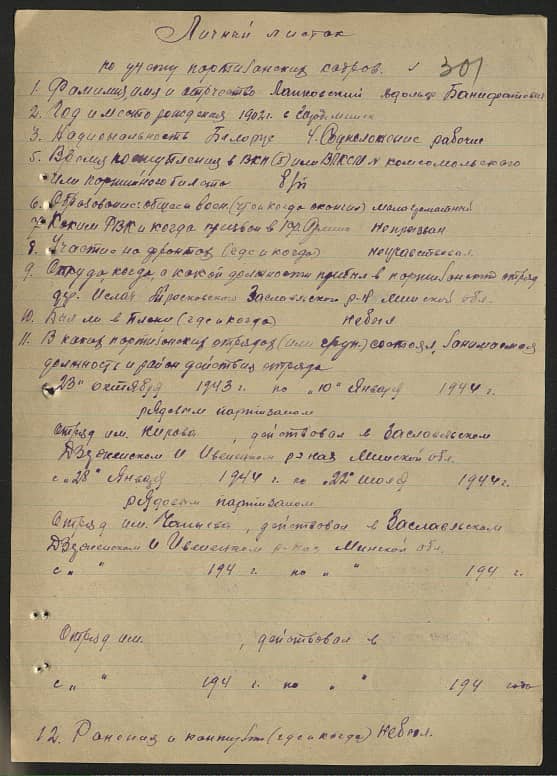 Личный листок
по учёту партизанских кадров. 301
1. Фамилия имя и отчество
2. Год и место рождения 1902 г.
3. Национальность Белорус 4. Соцположение рабочие
5. Время поступления в ВКП(б) или ВЛКСМ № комсомольского
или партийного билета б/п
6. Образование: общее и воен. (что и когда окончил) малограмотный
7. Каким РВК и когда призван в Кр. Армию Непризван
8. Участие на фронтах (где и когда) неучаствовал.
9. Откуда, когда, с какой должности прибыл в партизанский отряд
дер. Заславльского р-н Минской обл.
10. Был ли в плену (где и когда) небыл
11. В каких партизанских отрядах (или груп.) состоял, занимаемая
должность и район действия отряда
"23" октября 1943 г. по "10" Января 1944 г.
рядовым партизаном
Отряд им. Кирова, действовал в Заславльском
и Ивенецком р-нах Минской обл.
с "28" Января 1944 г. по "22" 1944 г.
рядовым партизаном
Отряд им. действовал в Заславльском
и Ивенецком р-нах Минской обл.
с " " 194 г. по " " 194 г.
Отряд им. , действовал в
с " " 194 г. по " " 194 года
12. Ранения и контузии (где и когда) небыл.